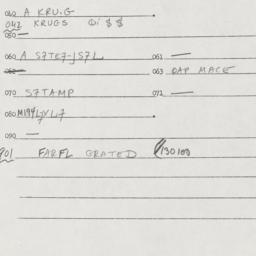 040 A KRU.G
042 KRUGS
050 —
060 A S7TE7-JS7L 061 —
062 — 063 OAP MACE
070 S7TAMP 072 —
080
090 —
901 FARFL GRATED 130108